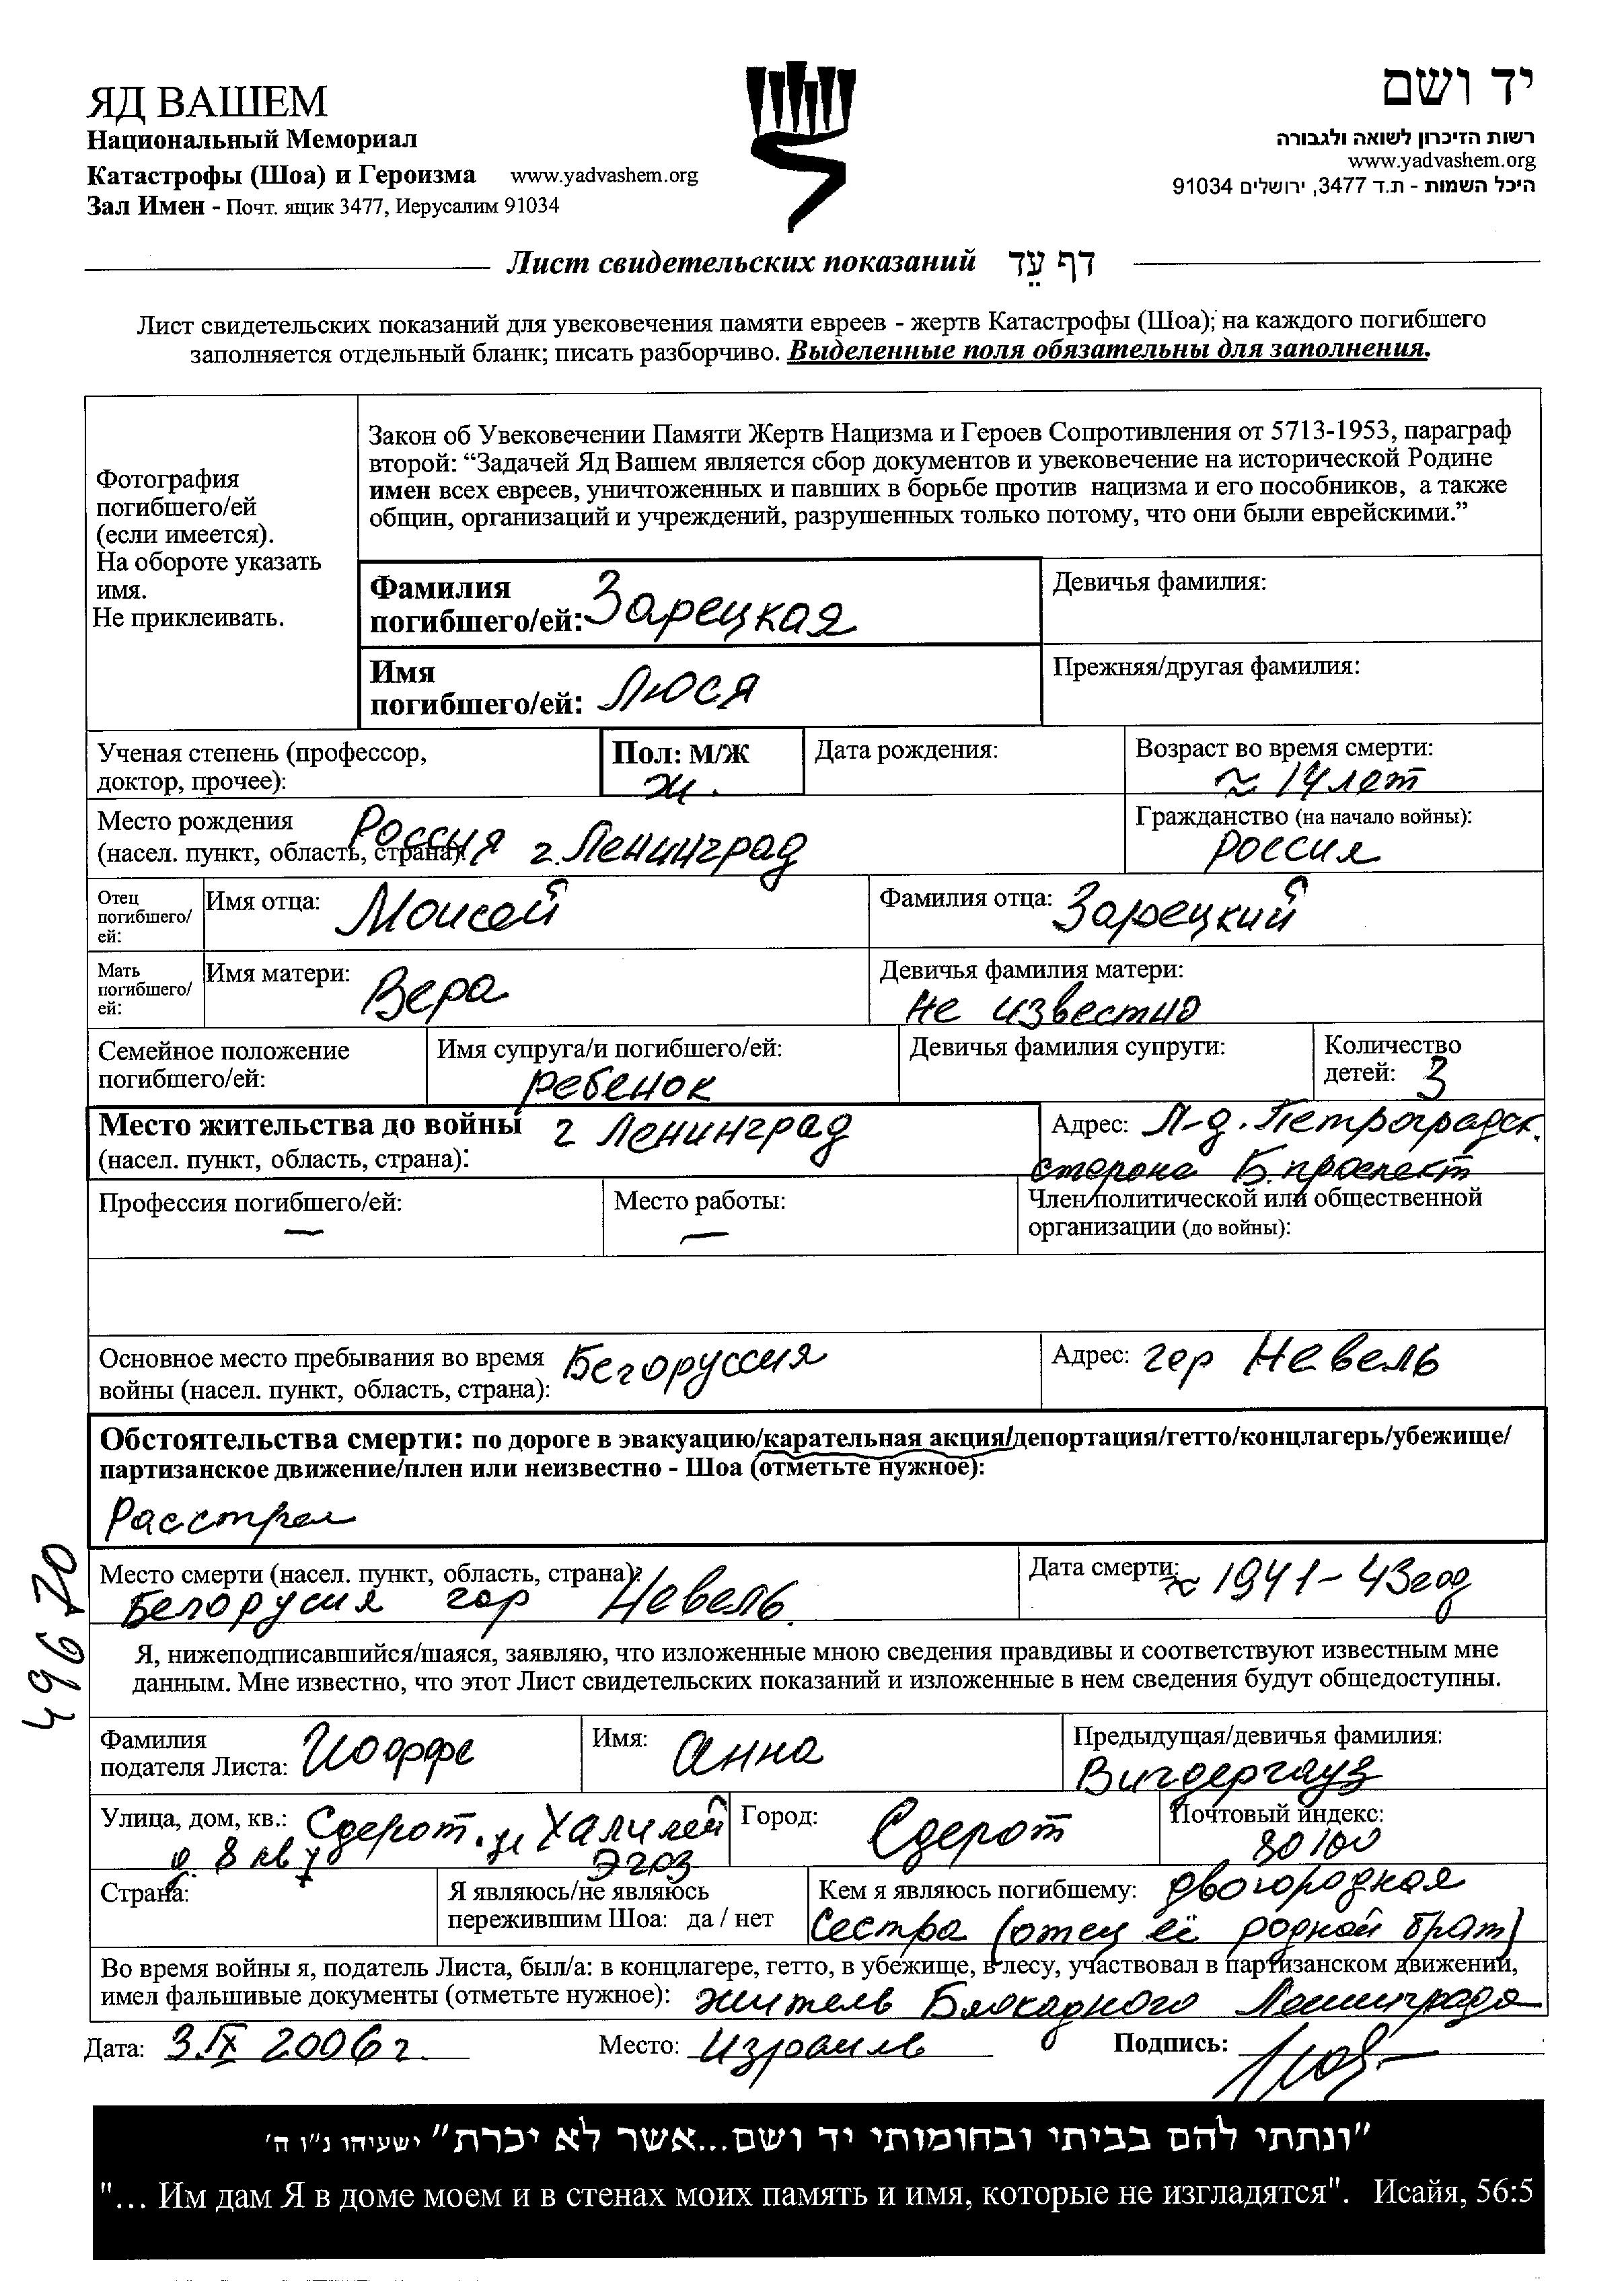 ЯД ВАШЕМ
Национальный Мемориал
Катастрофы (Шоа) и Героизма www.yadvashem.org
Зал Имен - Почт. ящик 3477, Иерусалим 91034
יד ושם
רשות הזיכרון לשואה ולגבורה
www.yadvashem.org
היכל השמות - ת.ד 3477, ירושלים 91034
Лист свидетельских показаний דף עֵד
Лист свидетельских показаний для увековечения памяти евреев - жертв Катастрофы (Шоа); на каждого погибшего
заполняется отдельный бланк; писать разборчиво. Выделенные поля обязательны для заполнения.
Фотография
погибшего/ей
(если имеется).
На обороте указать
имя.
Не приклеивать.
Закон об Увековечении Памяти Жертв Нацизма и Героев Сопротивления от 5713-1953, параграф
второй: “Задачей Яд Вашем является сбор документов и увековечение на исторической Родине
имен всех евреев, уничтоженных и павших в борьбе против нацизма и его пособников, а также
общин, организаций и учреждений, разрушенных только потому, что они были еврейскими.”
Фамилия
погибшего/ей: Зарецкая
Девичья фамилия:
Имя
погибшего/ей: Люся
Прежняя/другая фамилия:
Ученая степень (профессор,
доктор, прочее):
Пол: М/Ж
ж.
Дата рождения:
Возраст во время смерти:
≈ 14 лет
Место рождения
(насел. пункт, область, страна): Россия г. Ленинград
Гражданство (на начало войны):
Россия
Отец
погибшего/
ей:
Имя отца: Моисей
Фамилия отца: Зарецкий
Мать
погибшего/
ей:
Имя матери: Вера
Девичья фамилия матери:
Не известно
Семейное положение
погибшего/ей:
Имя супруга/и погибшего/ей:
ребенок
Девичья фамилия супруги:
Количество
детей: 3
Место жительства до войны г Ленинград
(насел. пункт, область, страна):
Адрес: Л-д. Петроградск.
сторона Б. проспект
Профессия погибшего/ей:
—
Место работы:
—
Член политической или общественной
организации (до войны):
Основное место пребывания во время
войны (насел. пункт, область, страна): Белоруссия
Адрес: гор Невель
Обстоятельства смерти: по дороге в эвакуацию/карательная акция/депортация/гетто/концлагерь/убежище/
партизанское движение/плен или неизвестно - Шоа (отметьте нужное):
Расстрел
Место смерти (насел. пункт, область, страна):
Белорусия гор Невель.
Дата смерти: ≈ 1941-43год
49670
Я, нижеподписавшийся/шаяся, заявляю, что изложенные мною сведения правдивы и соответствуют известным мне
данным. Мне известно, что этот Лист свидетельских показаний и изложенные в нем сведения будут общедоступны.
Фамилия
подателя Листа: Иоффе
Имя: Анна
Предыдущая/девичья фамилия:
Вигдергауз
Улица, дом, кв.: Сдерот. ул Халилей
Эгоз
д. 8 кв 7
Город: Сдерот
Почтовый индекс:
80100
Страна:
Я являюсь/не являюсь
пережившим Шоа: да / нет
Кем я являюсь погибшему: двоюродная
Сестра (отец её родной брат)
Во время войны я, податель Листа, был/а: в концлагере, гетто, в убежище, в лесу, участвовал в партизанском движении,
имел фальшивые документы (отметьте нужное): житель Блокадного Ленинграда
Дата: 3.IX 2006 г.
Место: Израиль
Подпись:
״ונתתי להם בביתי ובחומותי יד ושם...אשר לא יכרת״ ישעיהו נ״ו ה׳
"... Им дам Я в доме моем и в стенах моих память и имя, которые не изгладятся". Исайя, 56:5